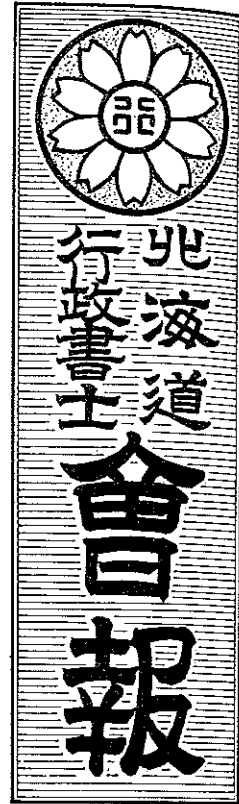 北海道
行政書士
會報